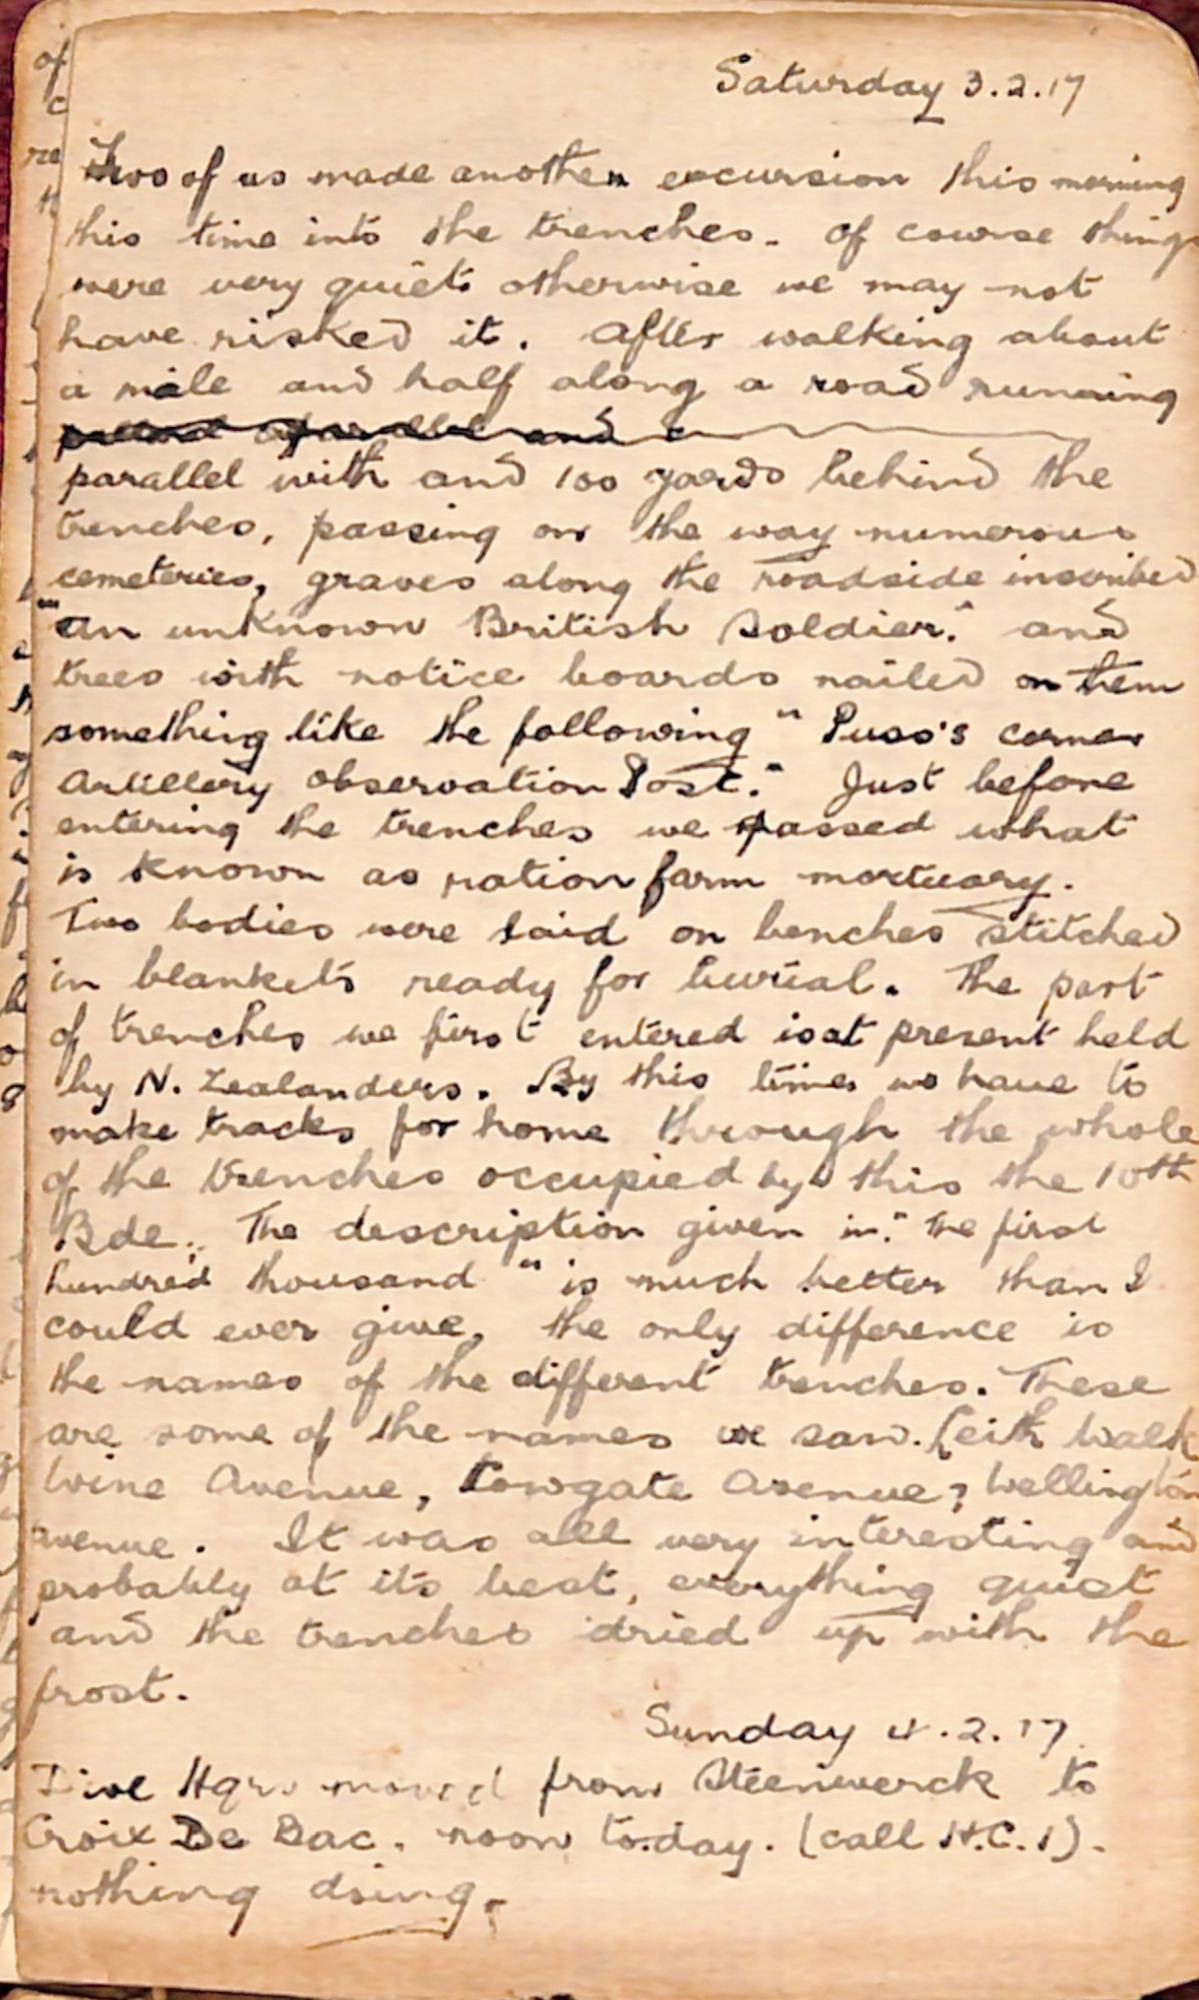 Saturday 3.2.17
Two of us made another excursion this morning
this time into the trenches. Of course things
were very quiet otherwise we may not
have risked it. After walking about
a mile and half along a road running
parallel with and 100 yards behind the
trenches, passing on the way numerous
cemeteries, graves along the roadside inscribed
"An unknown British Soldier." and
trees with notice boards nailed on them
something like the following "Puss's corner
Artillery Observation Post." Just before
entering the trenches we passed what
is known as ration farm mortuary.
Two bodies were laid on benches stitched
in blankets ready for burial. The part
of trenches we first entered is at present held
by N. Zealanders. By this time we have to
make tracks for home through the whole
of the trenches occupied by this the 10th
Bde. The description given in "The first
hundred thousand" is much better than I
could ever give, the only difference is
the names of the different trenches. These
are some of the names we saw. Leith Walk
Wine Avenue, Cowgate Avenue, Wellington
Avenue. It was all very interesting and
probably at its best, everything quiet
and the trenches dried up with the
frost.
Sunday 4.2.17
Divl Hqrs moved from Steenwerck to
Croix De Bac. noon to.day. (call H.C.1).
nothing doing.